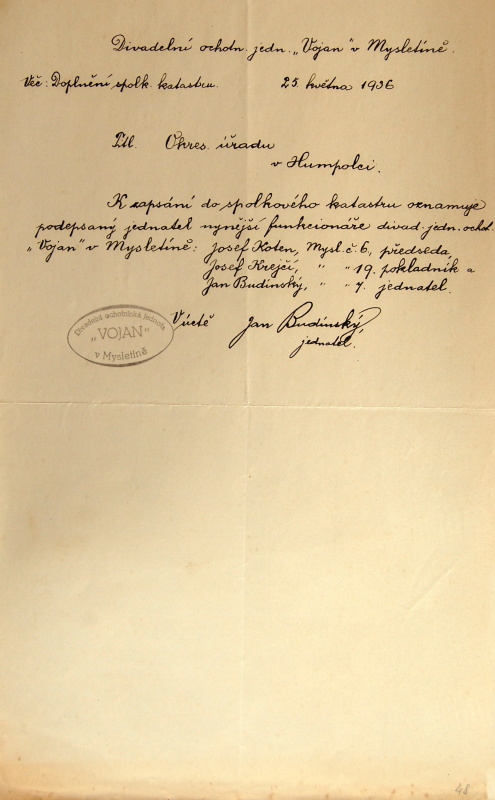 Divadelní ochotn. jedn. „Vojan" v Mysletíně.
Věc: Doplnění spolk. katastru. 25. května 1936
Ttl. Okres. úřadu
v Humpolci.
K zapsání do spolkového katastru oznamuje
podepsaný jednatel nynější funkcionáře divad. jedn. ochot.
„Vojan" v Mysletíně: Josef Koten, Mysl. č. 6, předseda
Josef Krejčí, " " 19. pokladník a
Jan Budínský, " " 7. jednatel.
V úctě Jan Budínský,
jednatel.
Divadelní ochotnická jednota
„VOJAN"
v Mysletíně
48